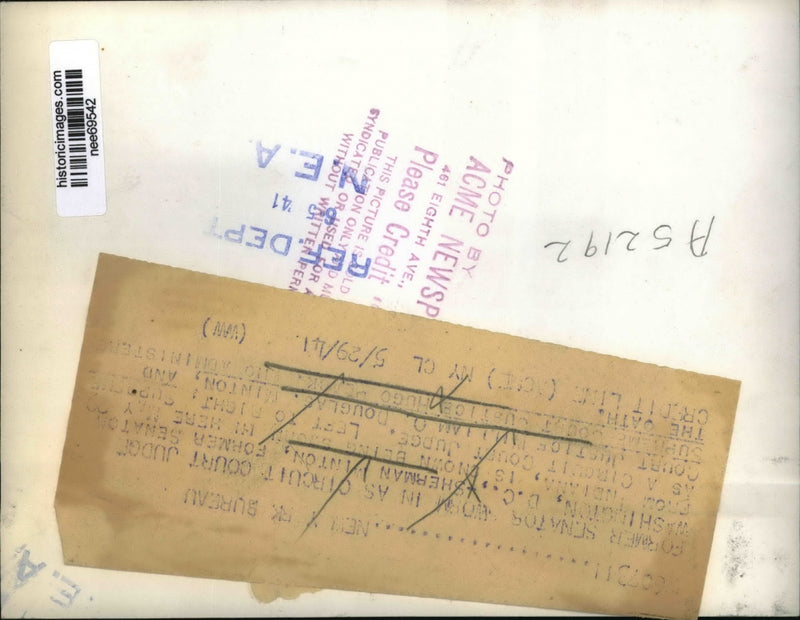 historicimages.com
nee69542
PHOTO BY
ACME NEWSP
461 EIGHTH AVE.,
Please Credit
THIS PICTURE IS SOLD
PUBLICATION ONLY
SYNDICATED OR USED
WITHOUT WRITTEN PERM
N.E.A.
'41
REF. DEPT
A52192
NEW BUREAU
FORMER SENATOR NOW IN AS CIRCUIT COURT JUDGE
WASHINGTON, D.C., SHERMAN MINTON, FORMER SENATOR
FROM INDIANA, IS SHOWN BEING HERE MAY
AS A CIRCUIT COURT JUDGE. LEFT TO RIGHT: SUPREME
COURT JUSTICE WILLIAM O. DOUGLAS, MINTON, AND
SUPREME COURT JUSTICE HUGO WHO ADMINISTE
THE OATH.
CREDIT LINE (ACME) NY CL 5/29/41 (WW)
E.A.